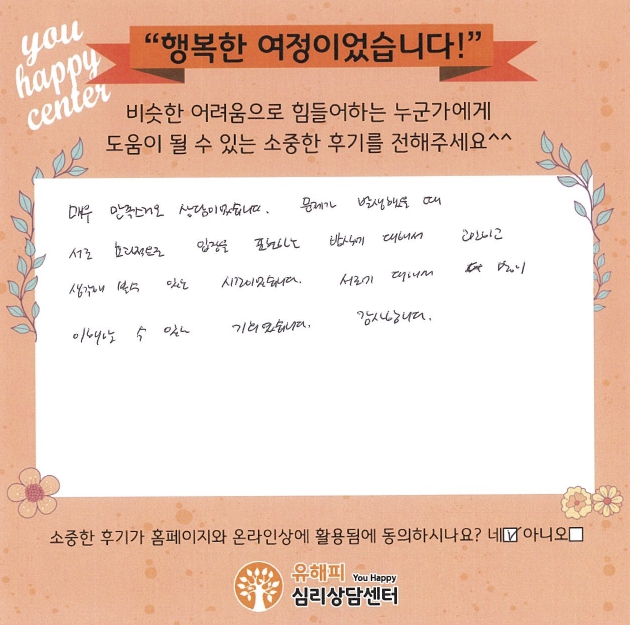 you
happy
center
“행복한 여정이었습니다!”
비슷한 어려움으로 힘들어하는 누군가에게
도움이 될 수 있는 소중한 후기를 전해주세요^^
매우 만족스러운 상담이었습니다. 문제가 발생했을 때
서로 효과적으로 입장을 표현하는 방식에 대해서 고민하고
생각해 볼수 있는 시간이었습니다. 서로에 대해서 많이
이해하는 수 있는 기회였습니다. 감사합니다.
소중한 후기가 홈페이지와 온라인상에 활용됨에 동의하시나요? 네☑ 아니오☐
유해피 You Happy
심리상담센터